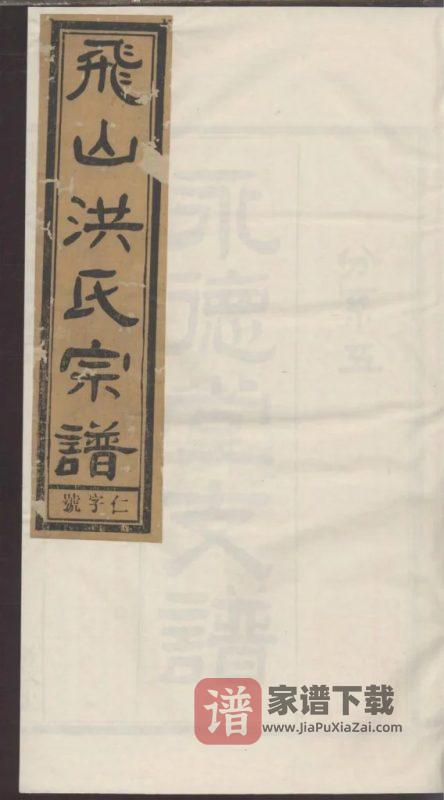 飛山洪氏宗譜
仁字號
永德堂支譜
譜
家谱下载
www.JiaPuXiaZai.com